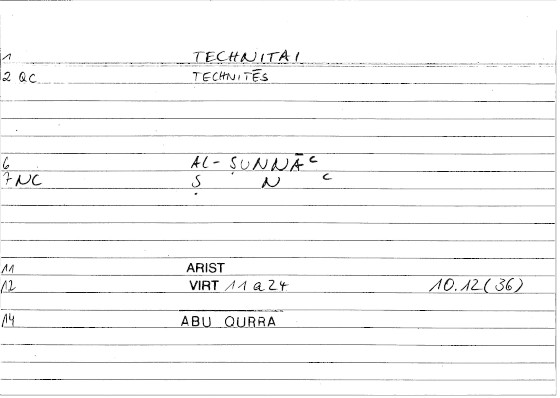 1 TECHNITAI
2 QC TECHNITĒS
6 AL-ṢUNNĀᶜ
7 NC Ṣ N ᶜ
11 ARIST
12 VIRT 11 a 24 10.12(36)
14 ABU QURRA